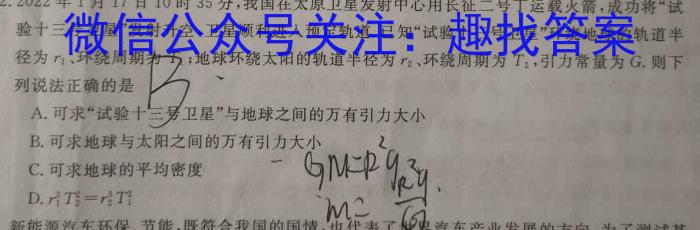 2. 2022 年 1 月 17 日 10 时 35 分,我国在太原卫星发射中心用长征二号丁运载火箭,成功将“试
验十三
微信公众号关注:趣找答案
径为 r₁、环绕周期为 ;地球环绕太阳的轨道半径为 r₂、环绕周期为 T₂,引力常量为 G. 则下
列说法正确的是
B
A. 可求“试验十三号卫星”与地球之间的万有引力大小
B. 可求地球与太阳之间的万有引力大小
C. 可求地球的平均密度
D. r₁³T₂²=r₂³T₁²
GM=R²g
M= R²g/G
新能源汽车环保、节能,既符合我国的国情,也代表了世界汽车产业发展的方向